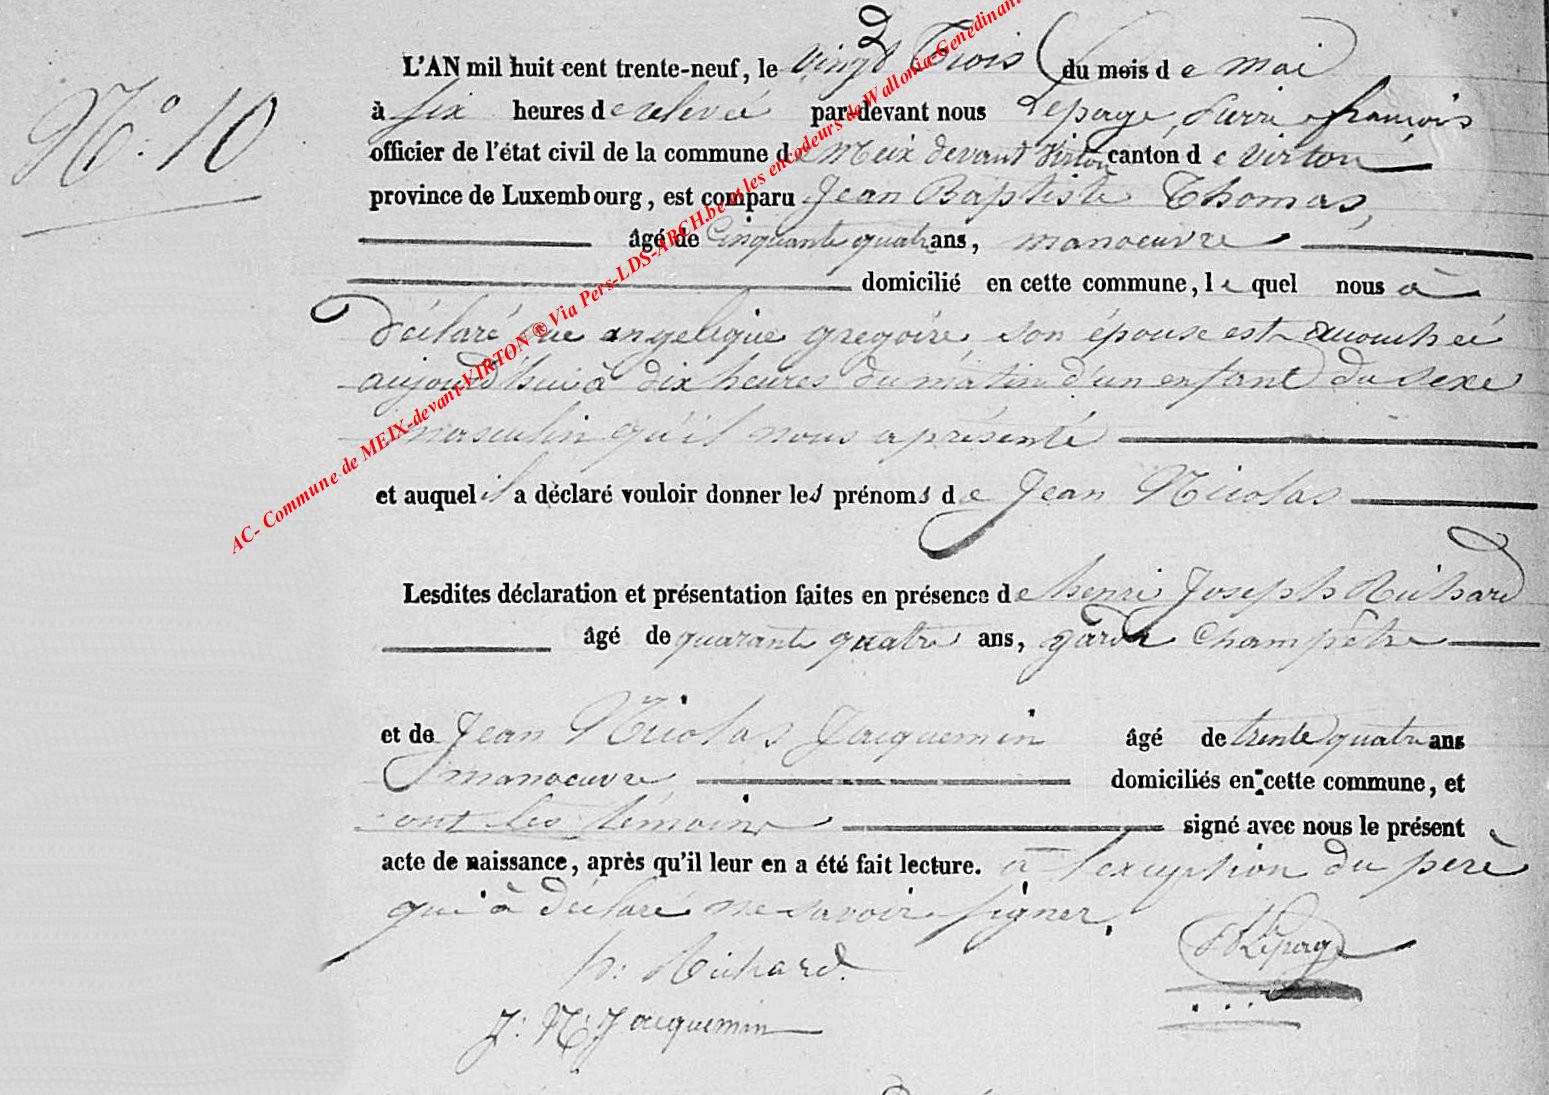 N.° 10
L'AN mil huit cent trente-neuf, le vingt Trois du mois de mai
à six heures de relevée par-devant nous Lepage, Pierre françois
officier de l'état civil de la commune de Meix devant Virton canton de Virton
province de Luxembourg, est comparu Jean Baptiste Thomas,
âgé de Cinquante quatre ans, manoeuvre
domicilié en cette commune, lequel nous à
déclaré que angelique gregoire, son épouse est accouchée
aujourd'hui à dix heures du matin d'un enfant du sexe
masculin qu'il nous a présenté
et auquel il a déclaré vouloir donner les prénoms de Jean Nicolas
Lesdites déclaration et présentation faites en présence de henri Joseph Richard
âgé de quarante quatre ans, garde Champêtre
et de Jean Nicolas Jacquemin âgé de trente quatre ans
manoeuvre domiciliés en cette commune, et
ont les témoins signé avec nous le présent
acte de naissance, après qu'il leur en a été fait lecture. à l'exception du père
qui à déclaré ne savoir signer.
h: Richard.
Lepage
J: N: Jacquemin
AC- Commune de MEIX-devant-VIRTON ® Via Pers-LDS-ARCH.be et les encodeurs de Wallonia-Genedinant